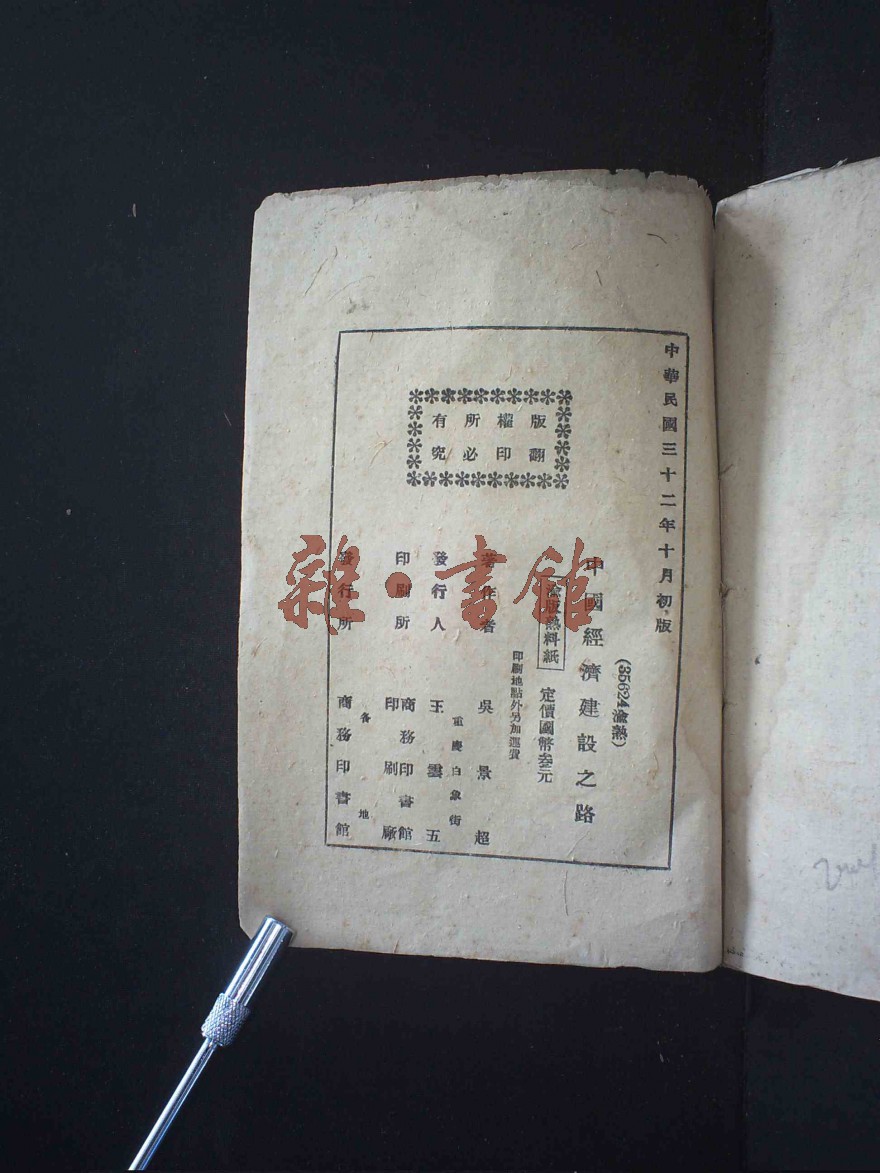 中華民國三十二年十月初版
版權所有
翻印必究
(35624渝熟)
中國經濟建設之路
渝版熟料紙 定價國幣叁元
印刷地點外另加運費
著作者 吳景超
重慶白象街
發行人 王雲五
印刷所 商務印書館印刷廠
各地
發行所 商務印書館
雜·書館